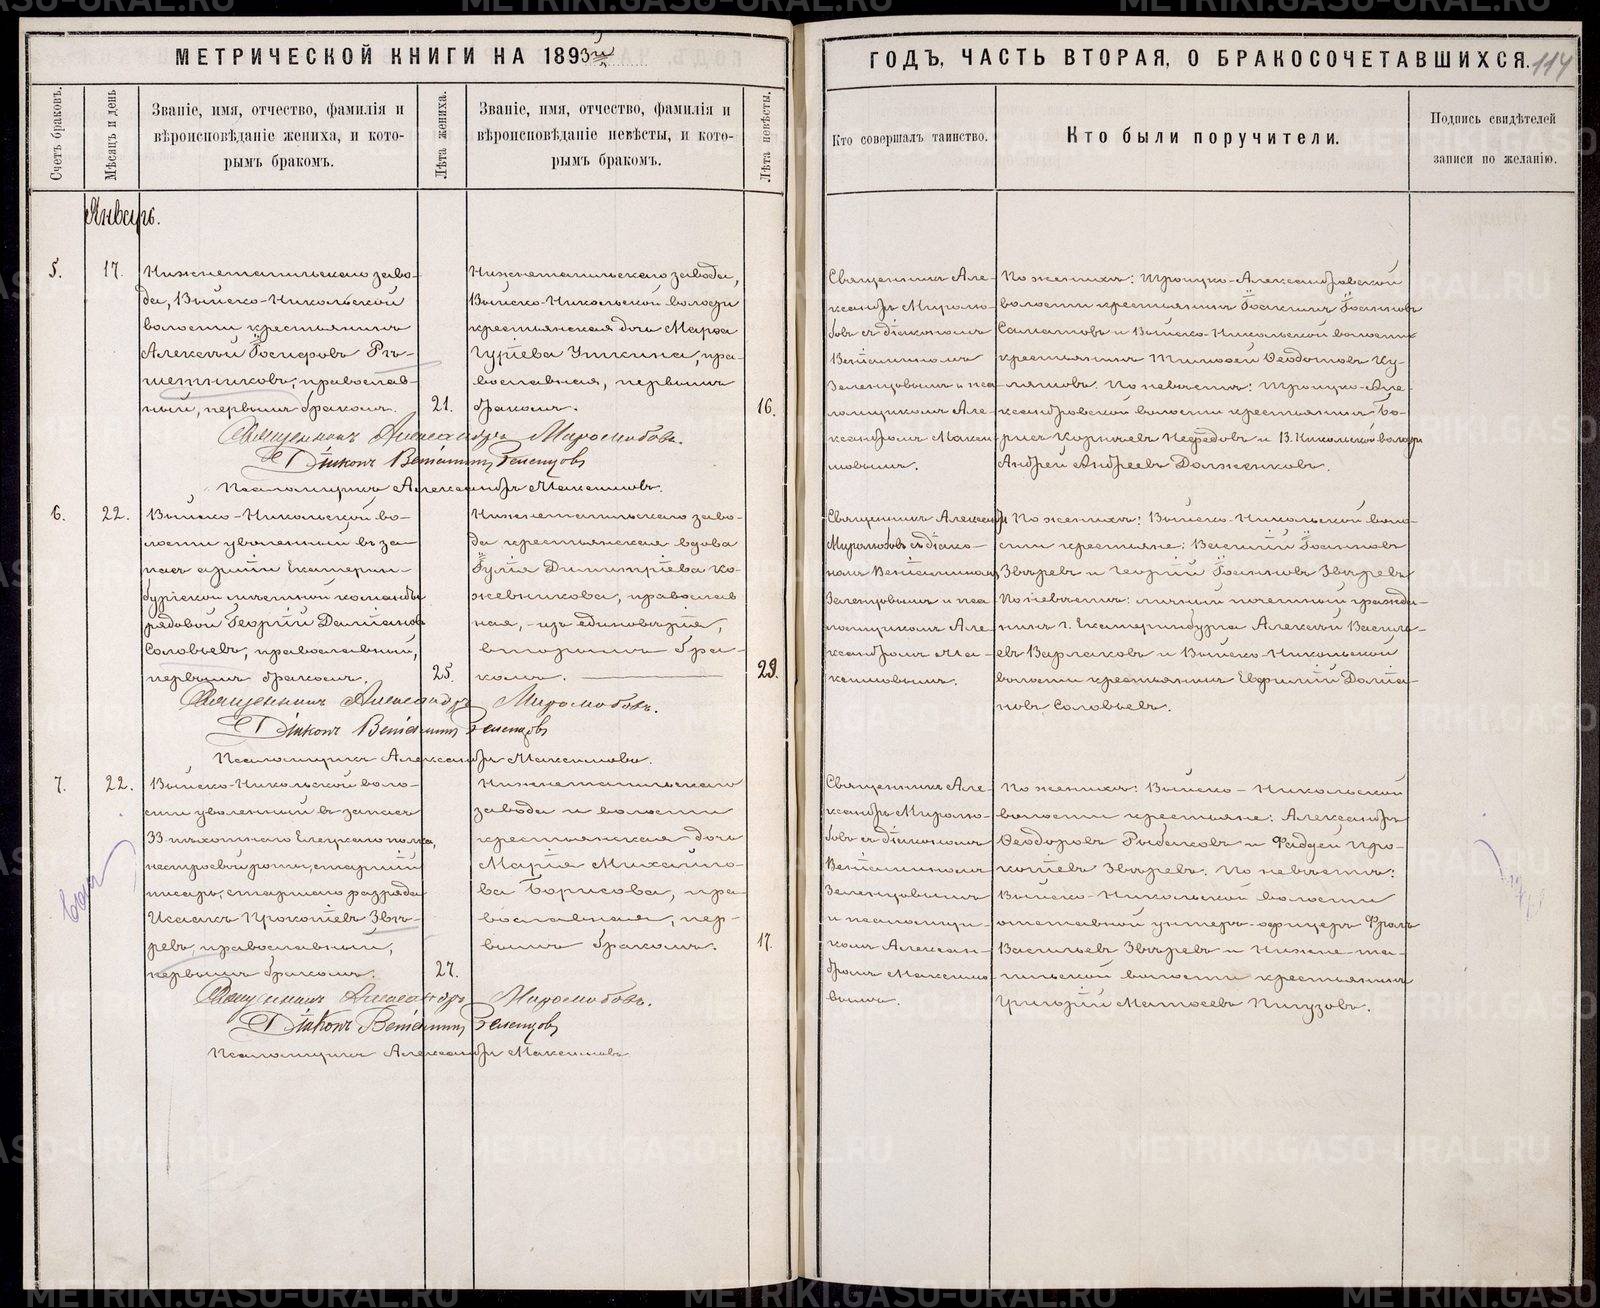 МЕТРИЧЕСКОЙ КНИГИ НА 1893й
ГОДЪ, ЧАСТЬ ВТОРАЯ, О БРАКОСОЧЕТАВШИХСЯ.
114
Счетъ браковъ.
Мѣсяцъ и день
Званіе, имя, отчество, фамилія и
вѣроисповѣданіе жениха, и кото-
рымъ бракомъ.
Лѣта жениха.
Званіе, имя, отчество, фамилія и
вѣроисповѣданіе невѣсты, и кото-
рымъ бракомъ.
Лѣта невѣсты.
Кто совершалъ таинство.
Кто были поручители.
Подпись свидѣтелей
записи по желанію.
Январь.
5.
17.
Нижнетагильскаго заво-
да, Выйско-Никольской
волости крестьянинъ
Алексѣй Іосифовъ Рѣ-
шетниковъ, православ-
ный, первымъ бракомъ.
21.
Нижнетагильскаго завода,
Выйско-Никольской волости
крестьянская дочь Марѳа
Гуріева Уткина, пра-
вославная, первымъ
бракомъ.
16.
Священникъ Але-
ксандръ Миролю-
бовъ съ діакономъ
Веніаминомъ
Зеленцовымъ и пса-
ломщикомъ Але-
ксандромъ Макси-
мовымъ.
По женихѣ: Троицко-Александровской
волости крестьянинъ Іоакимъ Іоанновъ
Саматовъ и Выйско-Никольской волости
крестьянинъ Тимоѳей Ѳеодотовъ Ку-
ляшовъ. По невѣстѣ: Троицко-Але-
ксандровской волости крестьянинъ Бо-
рисъ Корніевъ Нефедовъ и В.Никольской волости
Андрей Андреевъ Долженковъ.
Священникъ Александръ Миролюбовъ.
Діаконъ Веніаминъ Зеленцовъ
Псаломщикъ Александръ Максимовъ.
6.
22.
Выйско-Никольской во-
лости уволенный въ за-
пасъ арміи Екатерин-
бургской мѣстной команды
рядовой Георгій Даміановъ
Соловьевъ, православный,
первымъ бракомъ.
25.
Нижнетагильскаго заво-
да крестьянская вдова
Іулія Димитріева Ко-
жевникова, православ
ная, -изъ единовѣрія,
вторымъ бра-
комъ.
29.
Священникъ Александръ
Миролюбовъ съ діако-
номъ Веніаминомъ
Зеленцовымъ и пса-
ломщикомъ Але-
ксандромъ Ма-
ксимовымъ.
По женихѣ: Выйско-Никольской воло-
сти крестьяне: Василій Іоанновъ
Звѣревъ и Георгій Іоанновъ Звѣревъ
По невѣстѣ: личный почетный гражда-
нинъ г. Екатеринбурга Алексѣй Василь-
евъ Варлаковъ и Выйско-Никольской
волости крестьянинъ Евфимій Даміа-
новъ Соловьевъ.
Священникъ Александръ Миролюбовъ.
Діаконъ Веніаминъ Зеленцовъ
Псаломщикъ Александръ Максимовъ.
7.
22.
Выйско-Никольской воло-
сти уволенный въ запасъ
33 пѣхотнаго Елецкаго полка,
нестроевой роты, старшій
писарь, старшаго разряда
Исаакъ Прокопіевъ Звѣ-
ревъ, православный,
первымъ бракомъ.
27.
Нижнетагильскаго
завода и волости
крестьянская дочь
Марія Михайло-
ва Борисова, пра-
вославная, пер-
вымъ бракомъ.
17.
Священникъ Але-
ксандръ Миролю-
бовъ съ діакономъ
Веніаминомъ
Зеленцовымъ
и псаломщи-
комъ Алексан-
дромъ Максимо-
вымъ.
По женихѣ: Выйско-Никольской
волости крестьяне: Александръ
Ѳеодоровъ Рыбаковъ и Фаддей Про-
копіевъ Звѣревъ. По невѣстѣ:
Выйско-Никольской волости
отставной унтеръ-офицеръ Фролъ
Васильевъ Звѣревъ и Нижне-та-
гильской волости крестьянинъ
Григорій Матѳеевъ Пигузовъ.
Священникъ Александръ Миролюбовъ.
Діаконъ Веніаминъ Зеленцовъ
Псаломщикъ Александръ Максимовъ
METRIKI.GASO-URAL.RU